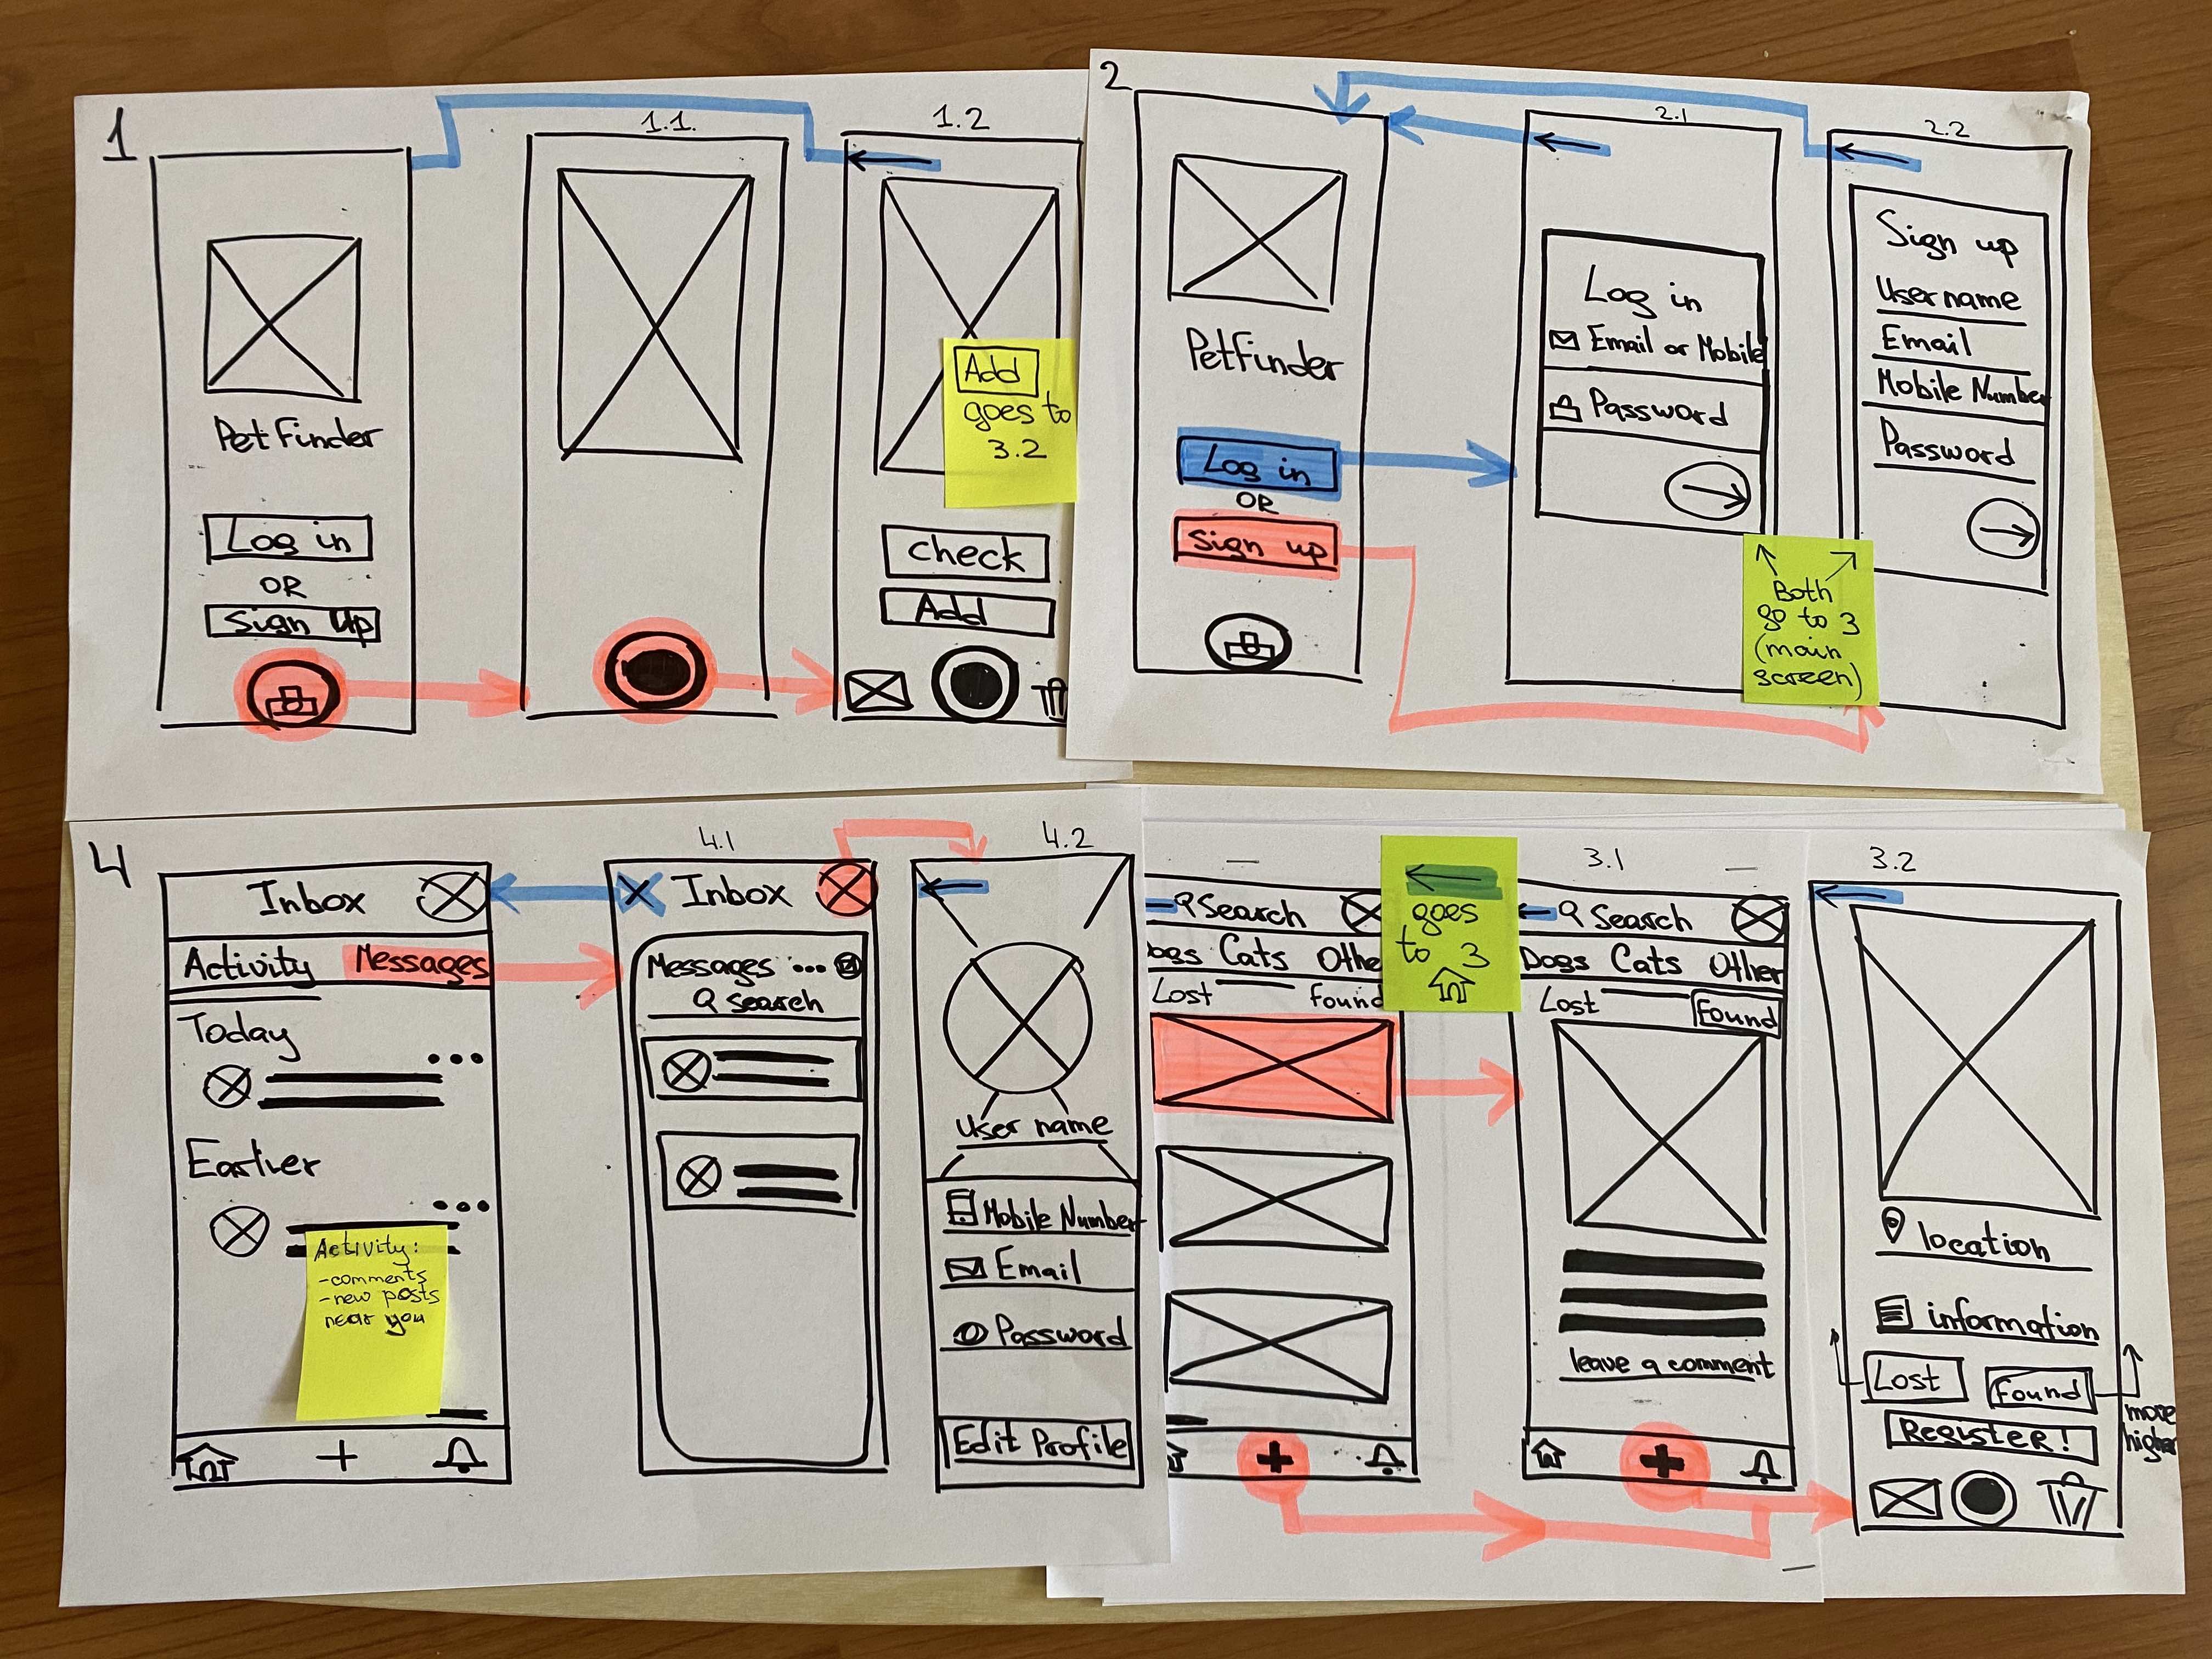 1
PetFinder
Log in
OR
Sign Up
1.1.
1.2
Add
goes to
3.2
check
Add
2
Petfinder
Log in
OR
Sign up
2.1
Log in
Email or Mobile
Password
Both
go to 3
(main
screen)
2.2
Sign up
Username
Email
Mobile Number
Password
4
Inbox
Activity Messages
Today
Earlier
Activity:
-comments
-new posts
near you
4.1
Inbox
Messages ...
search
4.2
User name
Mobile Number
Email
Password
Edit Profile
Search
Dogs Cats Othe
Lost found
goes
to 3
3.1
Search
Dogs Cats Other
Lost Found
leave a comment
3.2
location
information
Lost found
REGISTER!
more
higher